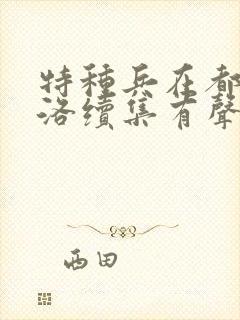 特種兵在都
洛續集有聲
西田